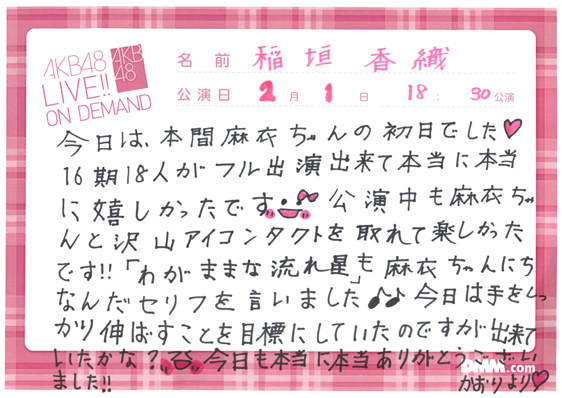 AKB48
LIVE!!
ON DEMAND
AKB
48
名前 稲垣 香織
公演日 2月1日 18:30公演
今日は、本間麻衣ちゃんの初日でした♥
16期18人がフル出演出来て本当に本当
に嬉しかったです 公演中も麻衣ちゃ
んと沢山アイコンタクトを取れて楽しかった
です!!「わがままな流れ星」も麻衣ちゃんにち
なんだセリフを言いました♪♪今日は手をしっ
かり伸ばすことを目標にしていたのですが出来て
いたかな?今日も本当に本当ありがとうござい
ました!!
かおりより♡
DMM.com